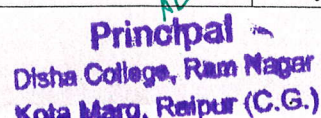 Principal
Disha College, Ram Nagar
Kota Marg, Raipur (C.G.)